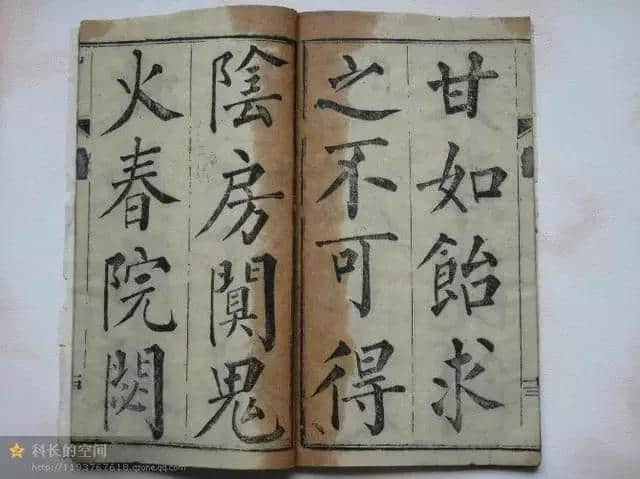 甘如飴求
之不可得
陰房闃鬼
火春院閟
科长的空间
http://1193767618.qzone.qq.com